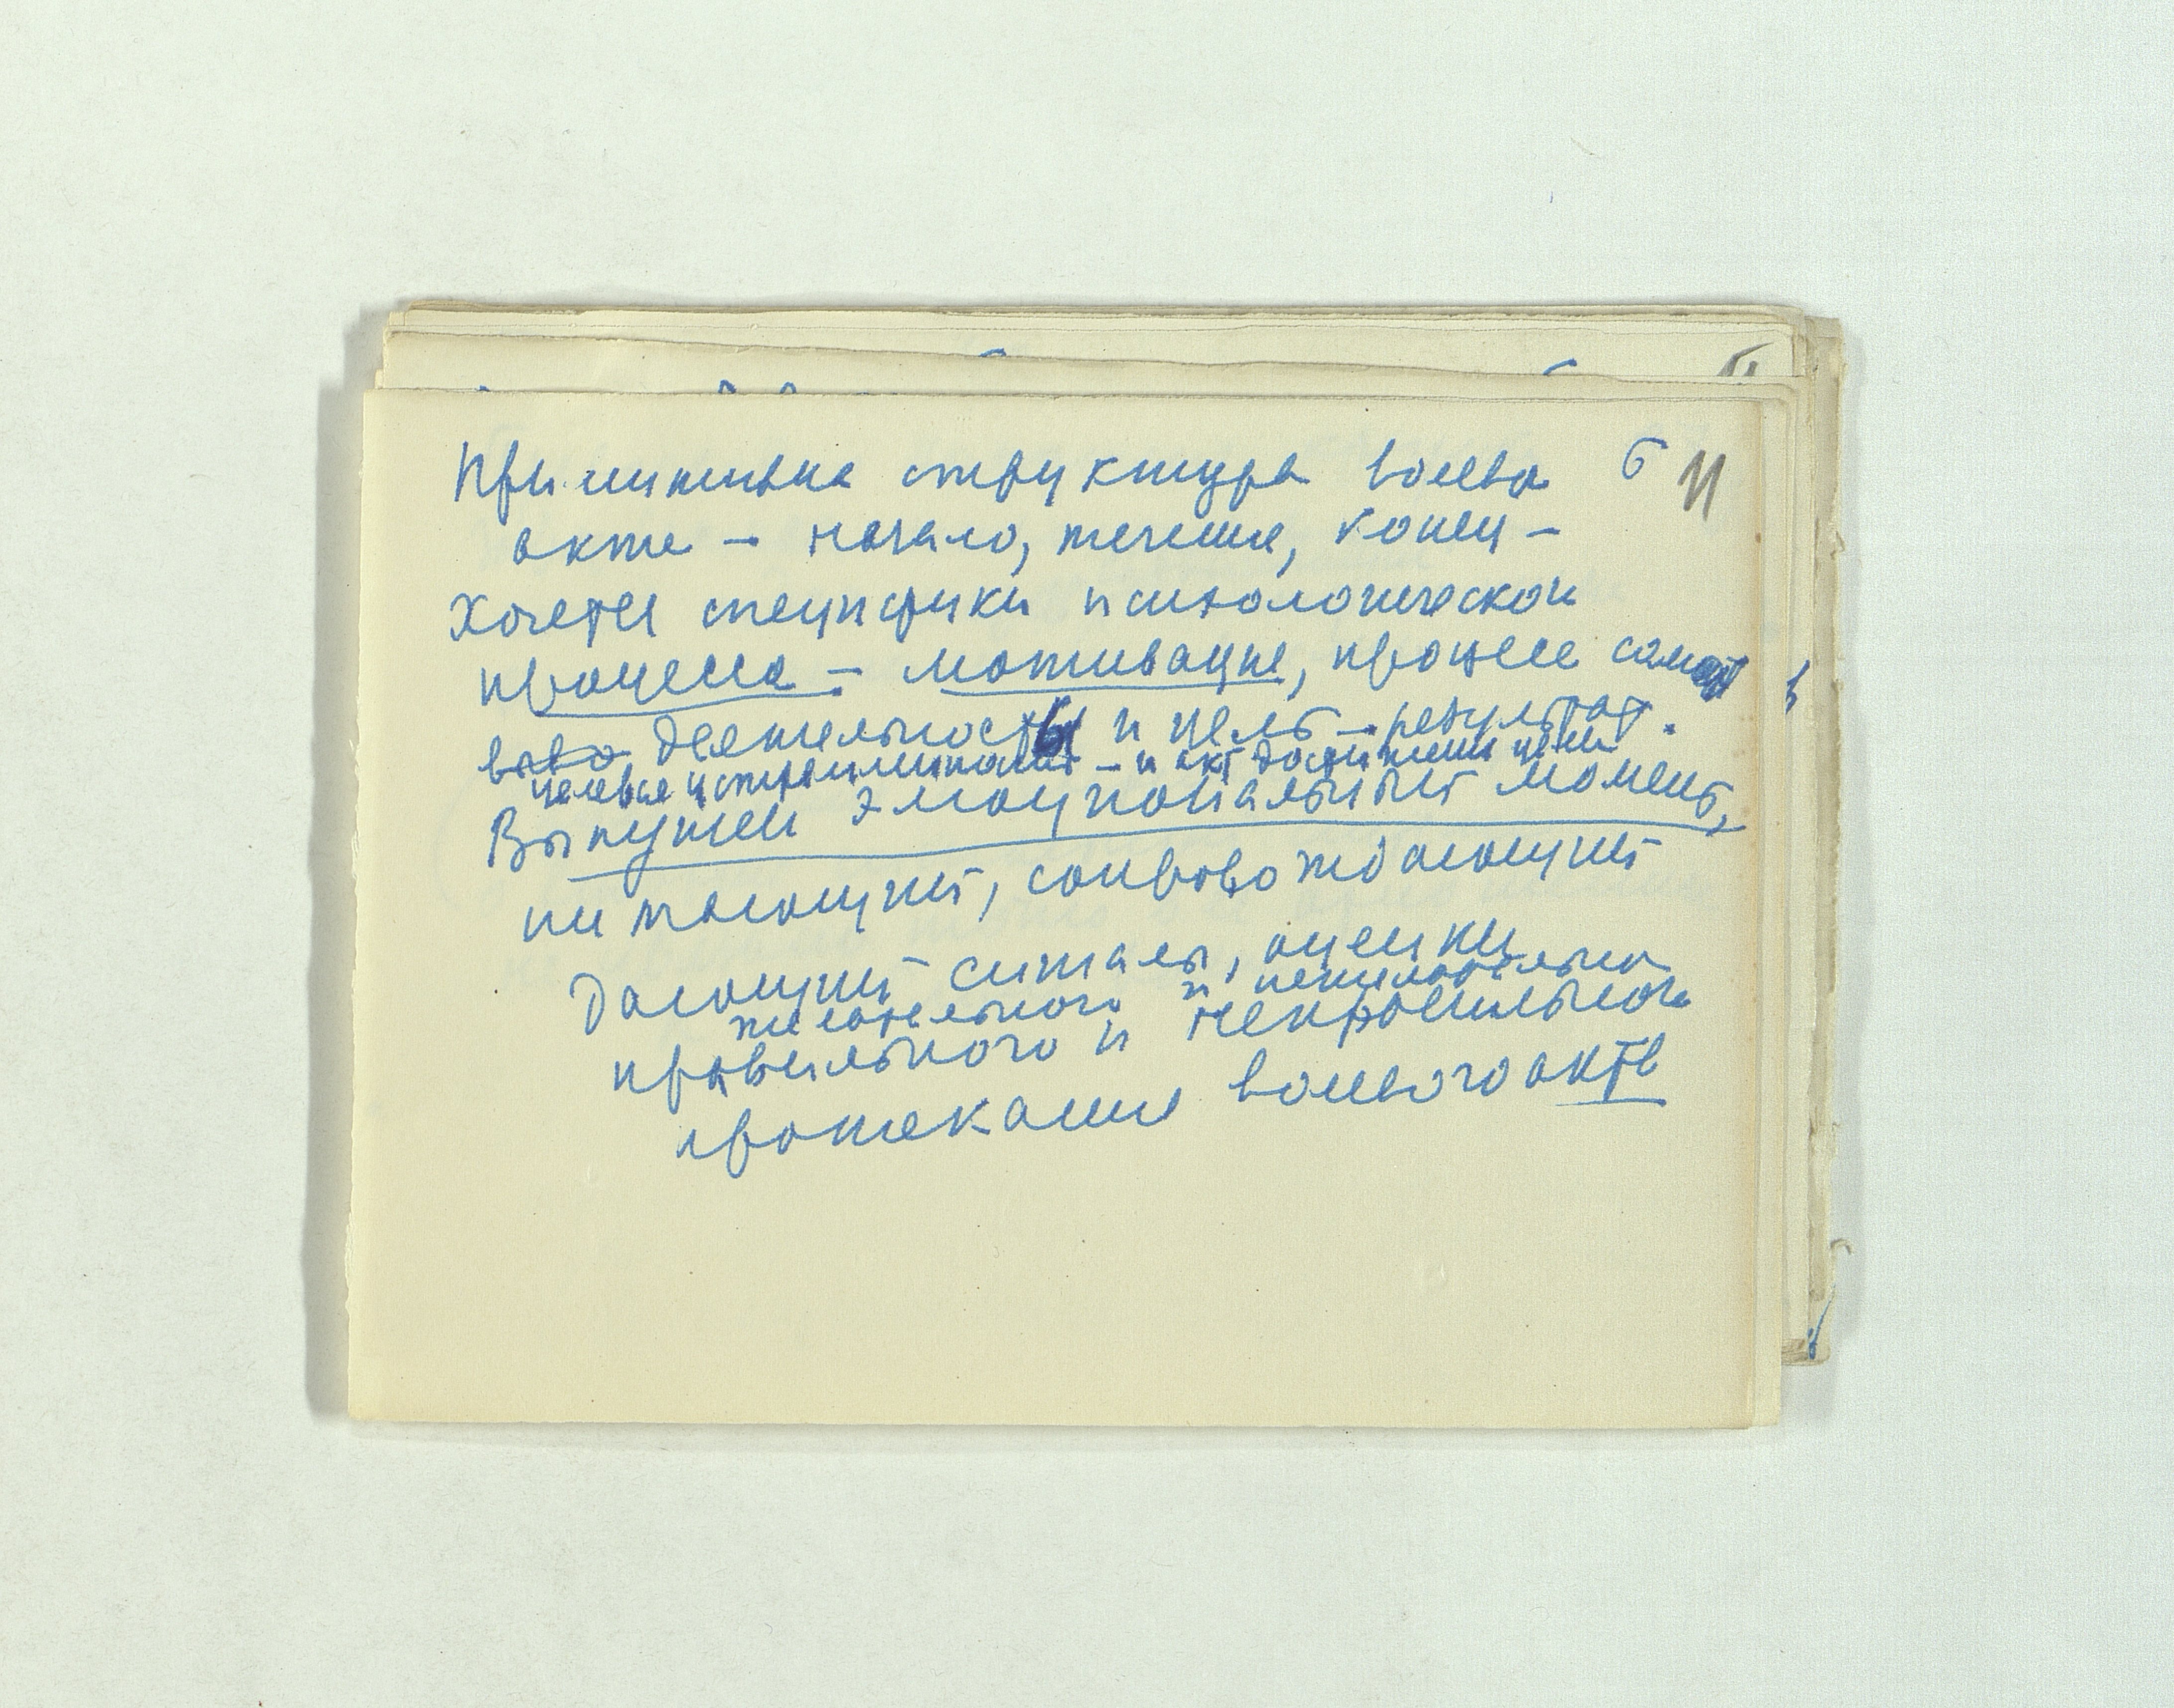 Примитивна структура волево 6 11
акте – начало, течение, конец –
Хочется специфики психологической
процесса – мотивация, процесс самой
деятельности и цель – результат.
целевая устремленность – и акт достижения цели
Выпущен эмоциональный момент,
питающий, сопровождающий
дающий сигналы, оценки
желательного и нежелательно
правильного и неправильного
протекания волевого акта